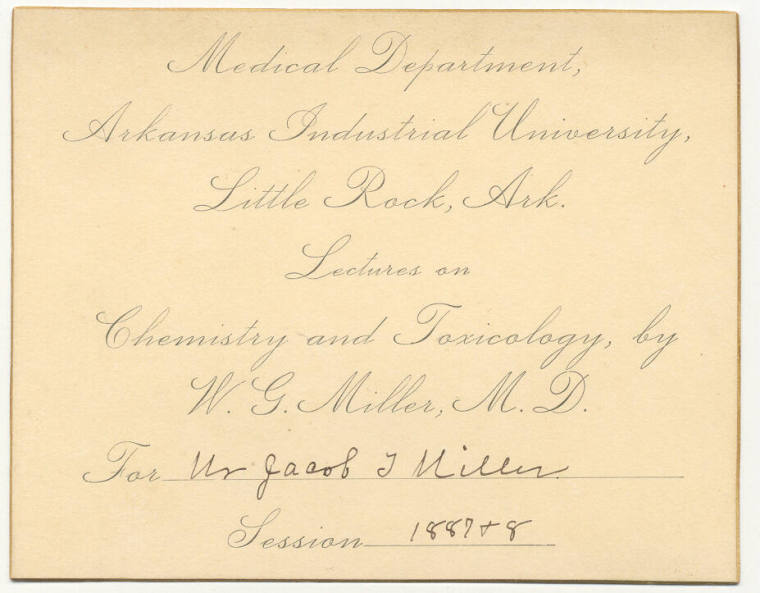 Medical Department,
Arkansas Industrial University,
Little Rock, Ark.
Lectures on
Chemistry and Toxicology, by
W. G. Miller, M. D.
For Mr Jacob T Miller
Session 1887+8